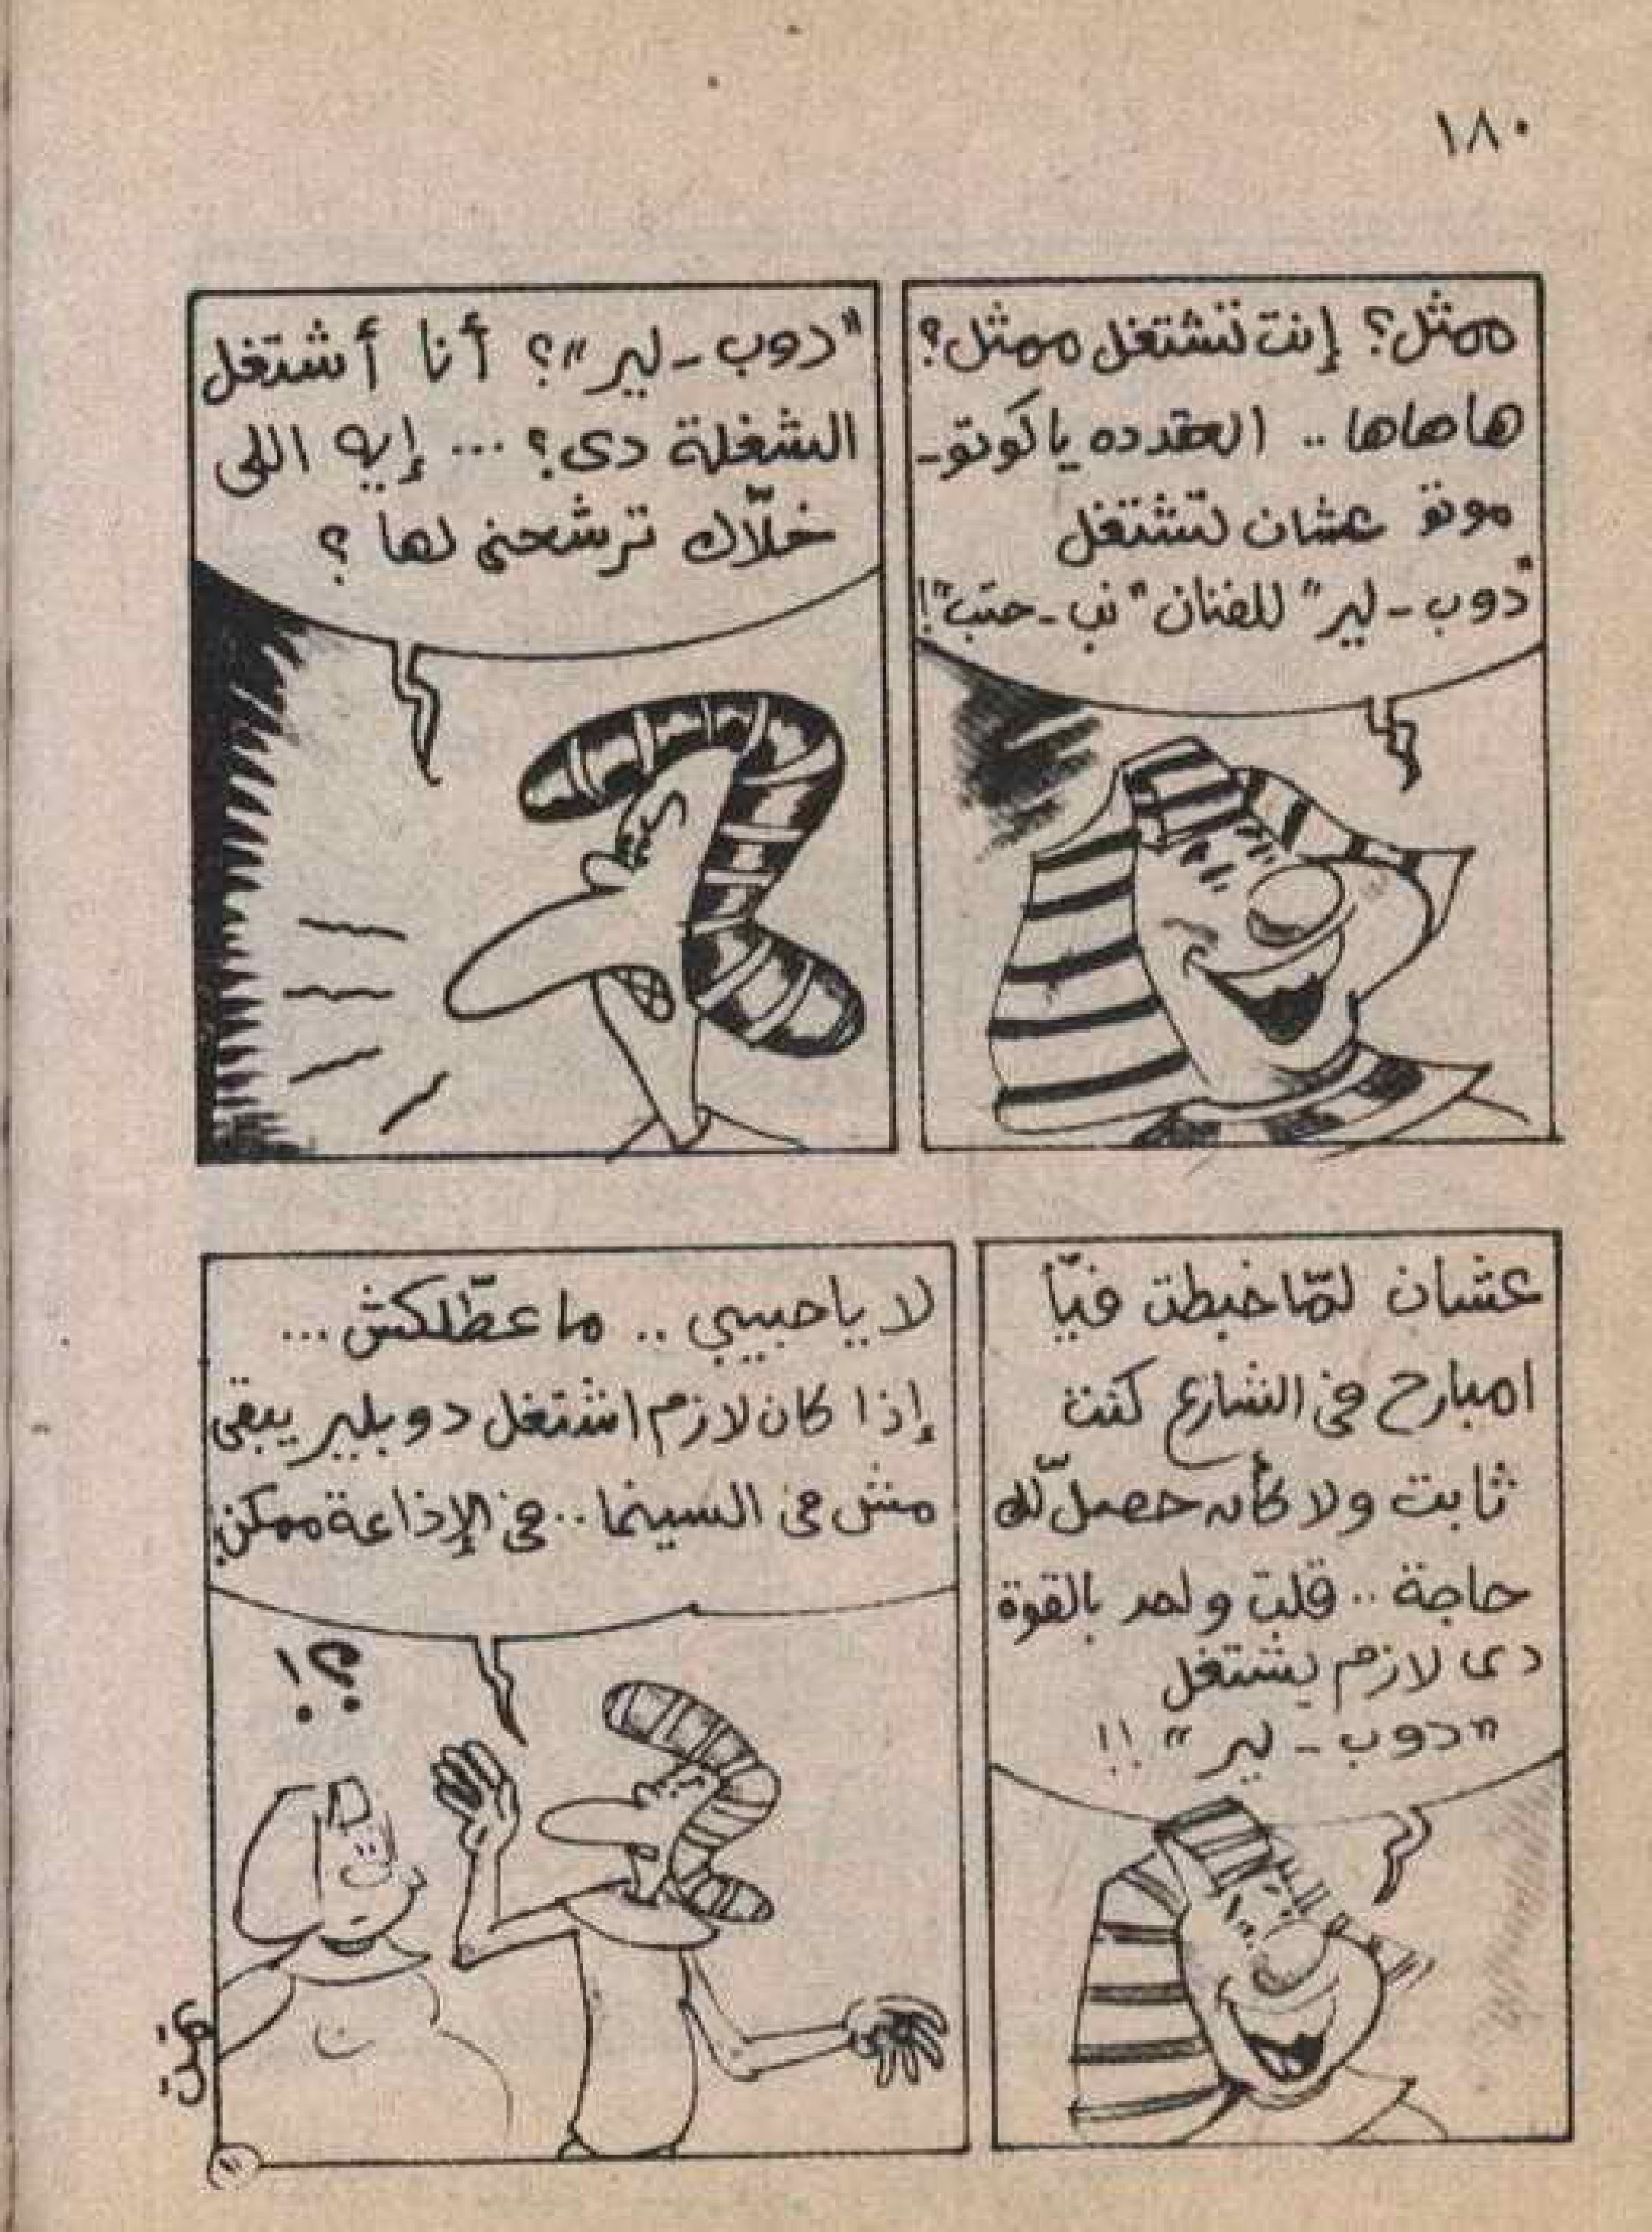 ١٨٠
ممثل؟ إنت تشتغل ممثل؟
هاهاها .. العقد ده يا كوتو-
موتو عشان تشتغل
"دوب - لير" للفنان "نب - حتب"!
"دوب - لير"؟ أنا أشتغل
الشغلة دى؟ ... إيه اللى
خلّاك ترشحنى لها؟
عشان لمّا خبطت فيّا
امبارح فى الشارع كنت
ثابت ولا كأنه حصلّك
حاجة .. قلت واحد بالقوة
دى لازم يشتغل
"دوب - لير" !!
لا يا حبيبى .. ما عطّلكش ...
إذا كان لازم اشتغل دوبلير يبقى
مش فى السينما .. فى الإذاعة ممكن!
؟!
عزت
١١